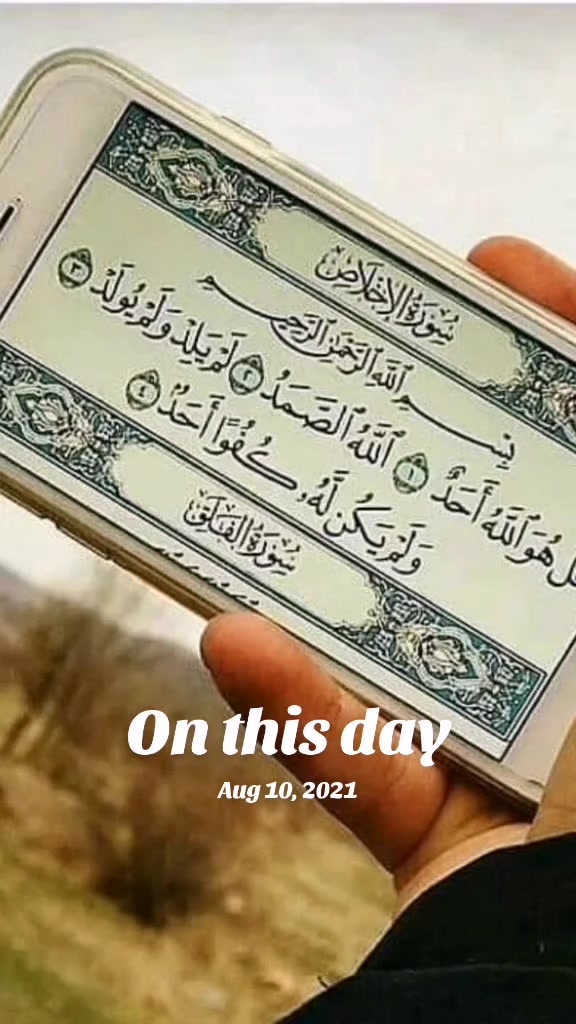 سُورَةُ الْإِخْلَاصِ
بِسْمِ ٱللَّهِ ٱلرَّحْمَٰنِ ٱلرَّحِيمِ
هُوَ ٱللَّهُ أَحَدٌ ١ ٱللَّهُ ٱلصَّمَدُ ٢ لَمْ يَلِدْ وَلَمْ يُولَدْ ٣
وَلَمْ يَكُن لَّهُۥ كُفُوًا أَحَدٌۢ ٤
سُورَةُ الْفَلَقِ
On this day
Aug 10, 2021